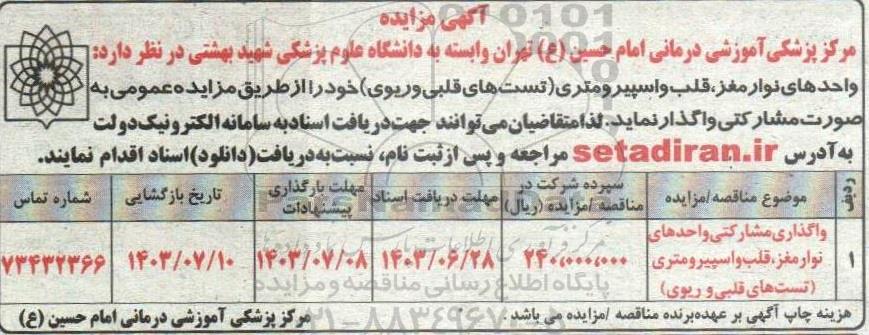 آگهی مزایده
مرکز پزشکی آموزشی درمانی امام حسین (ع) تهران وابسته به دانشگاه علوم پزشکی شهید بهشتی در نظر دارد:
واحدهای نوار مغز، قلب و اسپیرومتری (تست‌های قلبی و ریوی) خود را از طریق مزایده عمومی به
صورت مشارکتی واگذار نماید. لذا متقاضیان می‌توانند جهت دریافت اسناد به سامانه الکترونیک دولت
به آدرس setadiran.ir مراجعه و پس از ثبت نام، نسبت به دریافت (دانلود) اسناد اقدام نمایند.
ردیف | موضوع مناقصه/مزایده | سپرده شرکت در مناقصه/مزایده (ریال) | مهلت دریافت اسناد | مهلت بارگذاری پیشنهادات | تاریخ بازگشایی | شماره تماس
۱ | واگذاری مشارکتی واحدهای نوار مغز، قلب و اسپیرومتری (تست‌های قلبی و ریوی) | ۲۴۰،۰۰۰،۰۰۰ | ۱۴۰۳/۰۶/۲۸ | ۱۴۰۳/۰۷/۰۸ | ۱۴۰۳/۰۷/۱۰ | ۷۳۴۳۲۳۶۶
هزینه چاپ آگهی بر عهده برنده مناقصه /مزایده می باشد.
مرکز پزشکی آموزشی درمانی امام حسین (ع)
پایگاه اطلاع رسانی مناقصه و مزایده